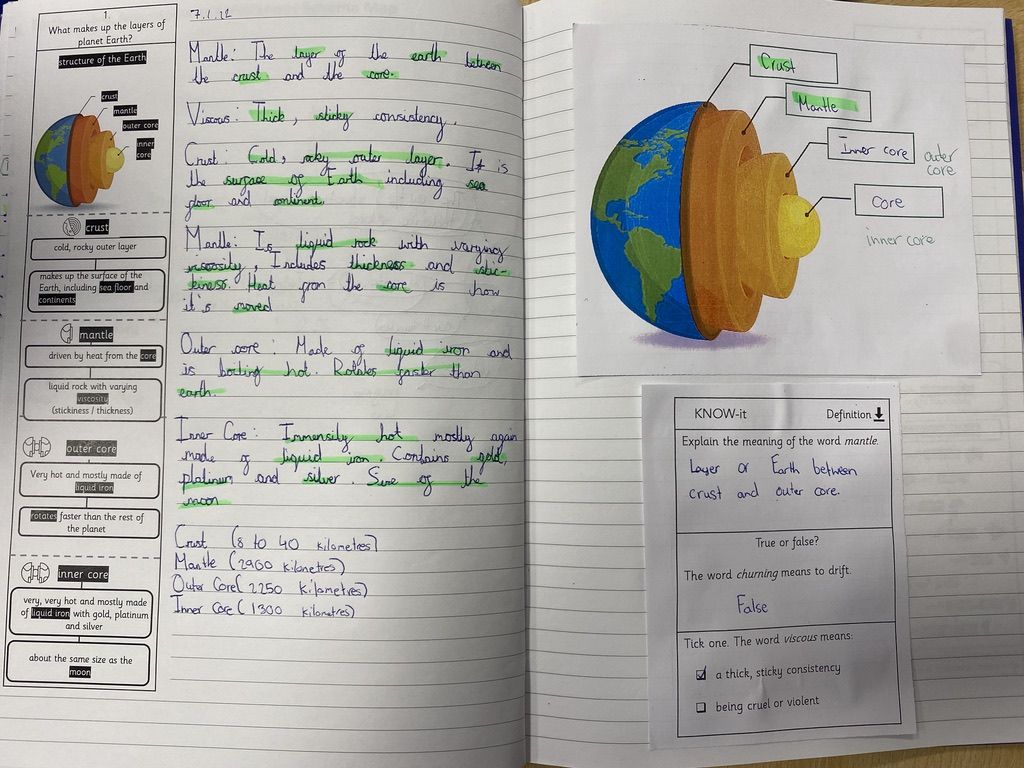 1.
What makes up the layers of
planet Earth?
structure of the Earth
crust
mantle
outer core
inner
core
crust
cold, rocky outer layer
makes up the surface of the
Earth, including sea floor and
continents
mantle
driven by heat from the core
liquid rock with varying
viscosity
(stickiness / thickness)
outer core
Very hot and mostly made of
liquid iron
rotates faster than the rest of
the planet
inner core
very, very hot and mostly made
of liquid iron with gold, platinum
and silver
about the same size as the
moon
7.1.22
Mantle: The layer of the earth between
the crust and the core.
Viscous: Thick, sticky consistency.
Crust: Cold, rocky outer layer. It is
the surface of Earth including sea
floor and continent.
Mantle: Is liquid rock with varying
viscosity, Includes thickness and stic-
kiness. Heat from the core is how
it's moved
Outer core: Made of liquid iron and
is boiling hot. Rotates faster than
earth.
Inner Core: Immensily hot mostly again
made of liquid iron. Contains gold,
platinum and silver. Size of the
moon
Crust (8 to 40 kilometres)
Mantle (2900 kilometres)
Outer Core (2250 kilometres)
Inner Core (1300 kilometres)
Crust
Mantle
Inner core
outer
core
Core
inner core
KNOW-it Definition
Explain the meaning of the word mantle.
Layer or Earth between
crust and outer core.
True or false?
The word churning means to drift.
False
Tick one. The word viscous means:
☑ a thick, sticky consistency
☐ being cruel or violent